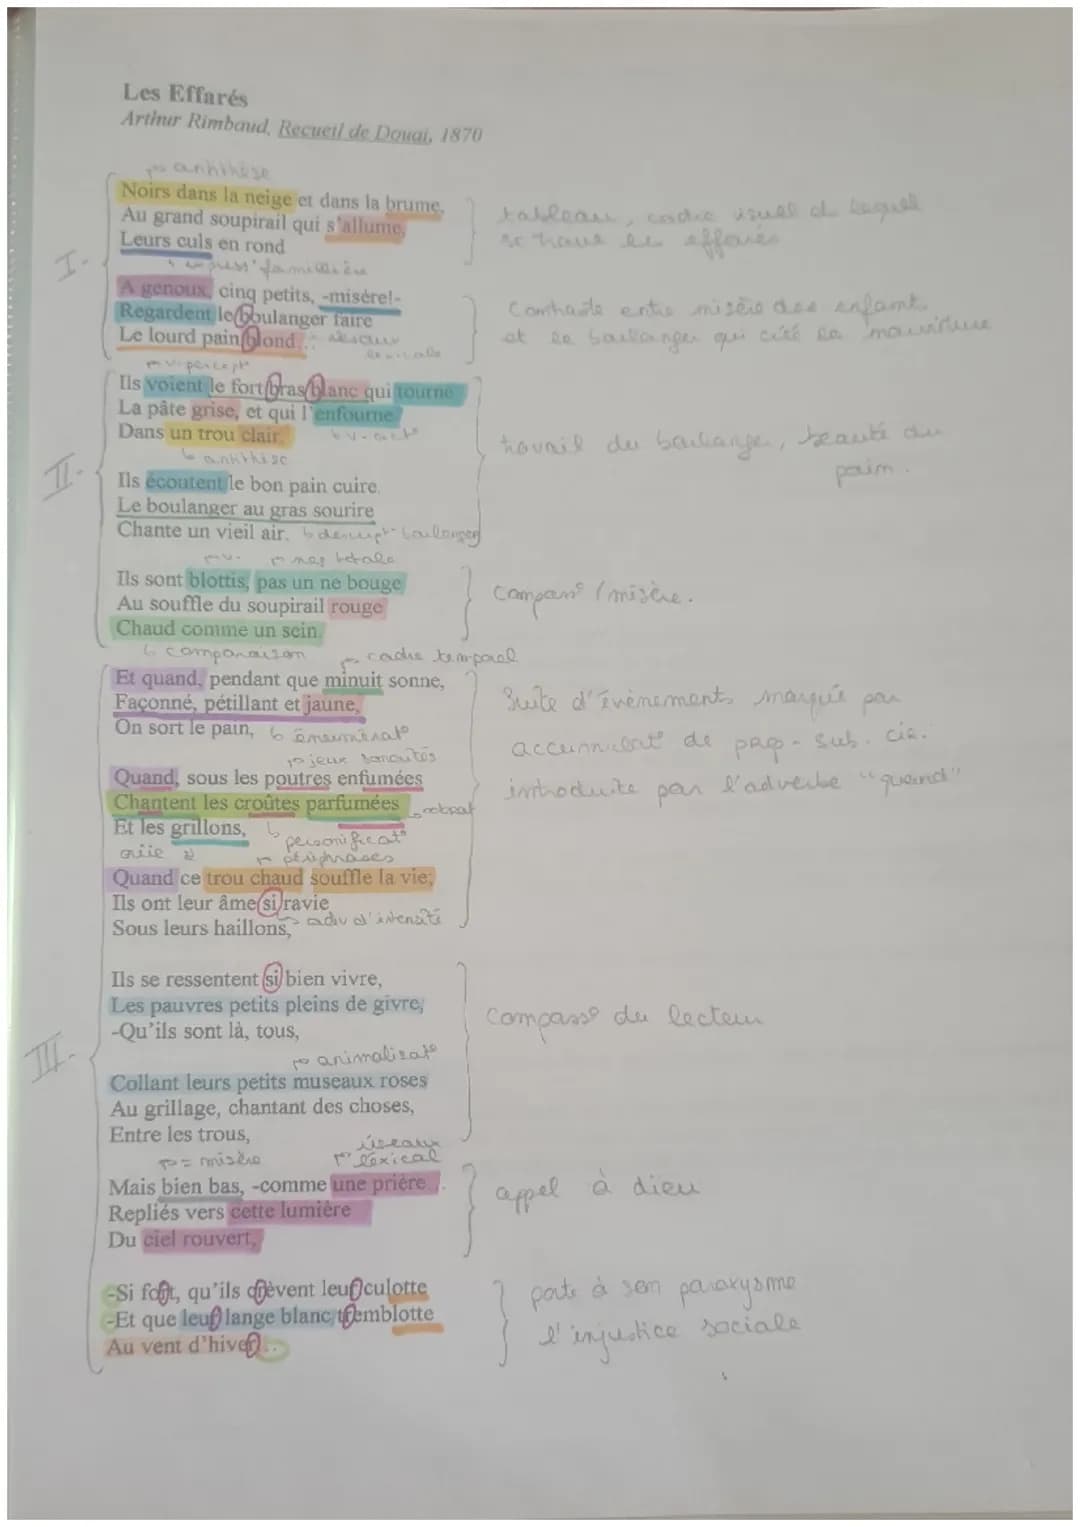 Les Effarés
Arthur Rimbaud, Recueil de Douai, 1870
antithèse
Noirs dans la neige et dans la brume,
Au grand soupirail qui s'allume,
Leurs culs en rond
tableau, cadre visuel ds lequel
se trouve les effarés
I.
express° familière
A genoux, cinq petits, -misère!-
Regardent le boulanger faire
Le lourd pain blond...
réseau
lexicale
Contraste entre misère des enfants
et le boulanger qui créé la nourriture
v. percept°
Ils voient le fort bras blanc qui tourne
La pâte grise, et qui l'enfourne
Dans un trou clair.
v. act°
antithèse
travail du boulanger, beauté du
pain.
II.
Ils écoutent le bon pain cuire.
Le boulanger au gras sourire
Chante un vieil air.
descript° boulanger
v.
neg totale
Ils sont blottis, pas un ne bouge
Au souffle du soupirail rouge
Chaud comme un sein.
comparaison
compass° / misère.
cadre temporel
Et quand, pendant que minuit sonne,
Façonné, pétillant et jaune,
On sort le pain,
énumérat°
jeux sonorités
Suite d'évènements marquée par
accumulat° de prop. sub. cir.
introduite par l'adverbe "quand"
Quand, sous les poutres enfumées
Chantent les croûtes parfumées
Et les grillons,
personnificat°
périphrases
Quand ce trou chaud souffle la vie;
Ils ont leur âme si ravie
Sous leurs haillons,
adv d'intensité
Ils se ressentent si bien vivre,
Les pauvres petits pleins de givre,
-Qu'ils sont là, tous,
compass° du lecteur
III.
animalisat°
Collant leurs petits museaux roses
Au grillage, chantant des choses,
Entre les trous,
= misère
réseau
lexical
Mais bien bas, -comme une prière...
Repliés vers cette lumière
Du ciel rouvert,
appel à dieu
-Si fort, qu'ils crèvent leur culotte
-Et que leur lange blanc tremblotte
Au vent d'hiver...
porte à son paroxysme
l'injustice sociale